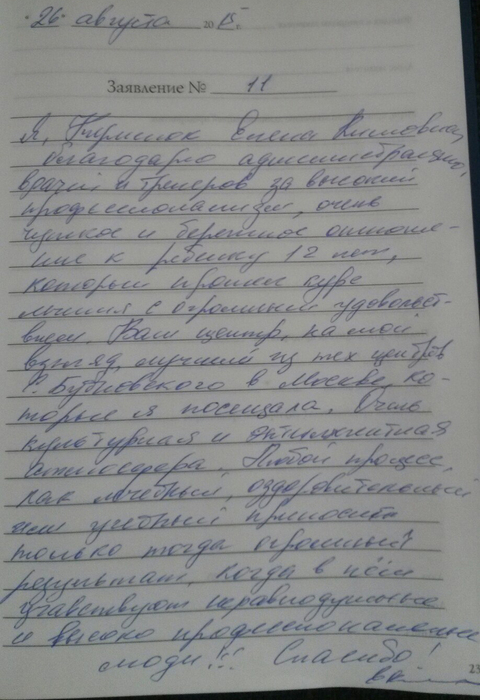 26 августа 2015 г.
Заявление № 11
Я, Елена Климовна,
благодарю администрацию,
врачей и тренеров за высокий
профессионализм, очень
чуткое и бережное отноше-
ние к ребенку 12 лет,
который прошел курс
лечения с огромным удовольст-
вием. Ваш центр, на мой
взгляд, лучший из тех центров
С. Бубновского в Москве, ко-
торые я посещала. Очень
культурная и оптимистичная
атмосфера. Любой процесс,
как лечебный, оздоровительный
или учебный приносит
только тогда огромный
результат, когда в нём
участвуют неравнодушные
и высоко профессиональные
люди!!! Спасибо!
23